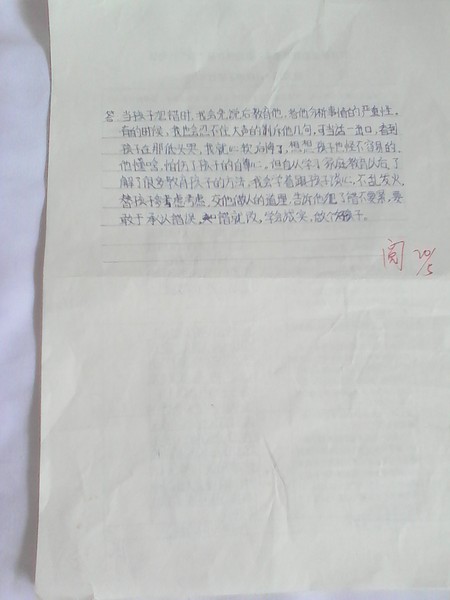 答 当孩子犯错时,我会先说后教育他,给他分析事情的严重性,
有的时候,我也会忍不住大声的训斥他几句,可当话一出口,看到
孩子在那低头哭,我就心软后悔了,想想孩子也怪不容易的,
他懂啥,怕伤了孩子的自尊心,但自从学了家庭教育以后,了
解了很多教育孩子的方法,我会学着跟孩子谈心,不乱发火
替孩子多考虑考虑,交他做人的道理,告诉他犯了错不要紧,要
敢于承认错误,知错就改,学会诚实,做个好孩子。
阅 20/5